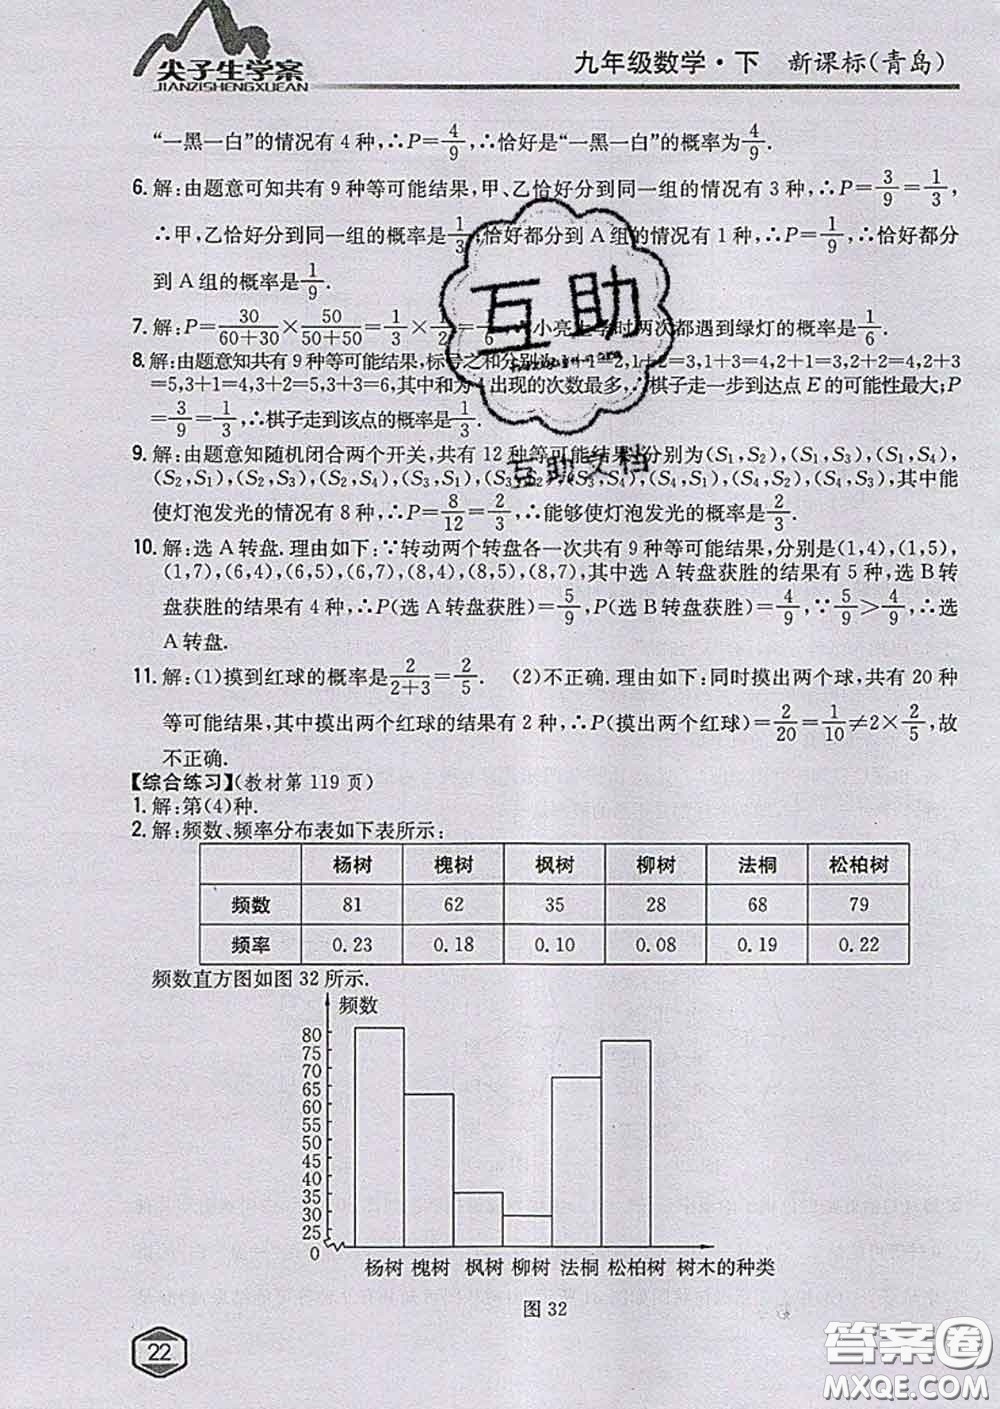 尖子生学案
JIANZISHENGXUEAN
九年级数学·下 新课标(青岛)
“一黑一白”的情况有 4 种,∴P=4/9,∴恰好是“一黑一白”的概率为4/9.
6. 解:由题意可知共有 9 种等可能结果,甲、乙恰好分到同一组的情况有 3 种,∴P=3/9=1/3,
∴甲,乙恰好分到同一组的概率是1/3;恰好都分到 A 组的情况有 1 种,∴P=1/9,∴恰好都分
到 A 组的概率是1/9.
7. 解:P=30/(60+30)×50/(50+50)=1/3×1/2=1/6,∴小亮上学时两次都遇到绿灯的概率是1/6.
8. 解:由题意知共有 9 种等可能结果,标号之和分别为1+1=2,1+2=3,1+3=4,2+1=3,2+2=4,2+3
=5,3+1=4,3+2=5,3+3=6,其中和为4出现的次数最多,∴棋子走一步到达点 E 的可能性最大;P
=3/9=1/3,∴棋子走到该点的概率是1/3.
9. 解:由题意知随机闭合两个开关,共有 12 种等可能结果,分别为(S1,S2),(S1,S3),(S1,S4),
(S2,S1),(S2,S3),(S2,S4),(S3,S1),(S3,S2),(S3,S4),(S4,S1),(S4,S2),(S4,S3),其中能
使灯泡发光的情况有 8 种,∴P=8/12=2/3,∴能够使灯泡发光的概率是2/3.
10. 解:选 A 转盘.理由如下:∵转动两个转盘各一次共有 9 种等可能结果,分别是(1,4),(1,5),
(1,7),(6,4),(6,5),(6,7),(8,4),(8,5),(8,7),其中选 A 转盘获胜的结果有 5 种,选 B 转
盘获胜的结果有 4 种,∴P(选 A 转盘获胜)=5/9,P(选 B 转盘获胜)=4/9,∵5/9>4/9,∴选
A 转盘.
11. 解:(1)摸到红球的概率是2/(2+3)=2/5. (2)不正确.理由如下:同时摸出两个球,共有 20 种
等可能结果,其中摸出两个红球的结果有 2 种,∴P(摸出两个红球)=2/20=1/10≠2×2/5,故
不正确.
【综合练习】(教材第 119 页)
1. 解:第(4)种.
2. 解:频数、频率分布表如下表所示:
杨树 槐树 枫树 柳树 法桐 松柏树
频数 81 62 35 28 68 79
频率 0.23 0.18 0.10 0.08 0.19 0.22
频数直方图如图 32 所示.
频数
80
75
70
65
60
55
50
45
40
35
30
25
0
杨树 槐树 枫树 柳树 法桐 松柏树 树木的种类
图 32
22
互助
互助文档
答案圈
MXQE.COM